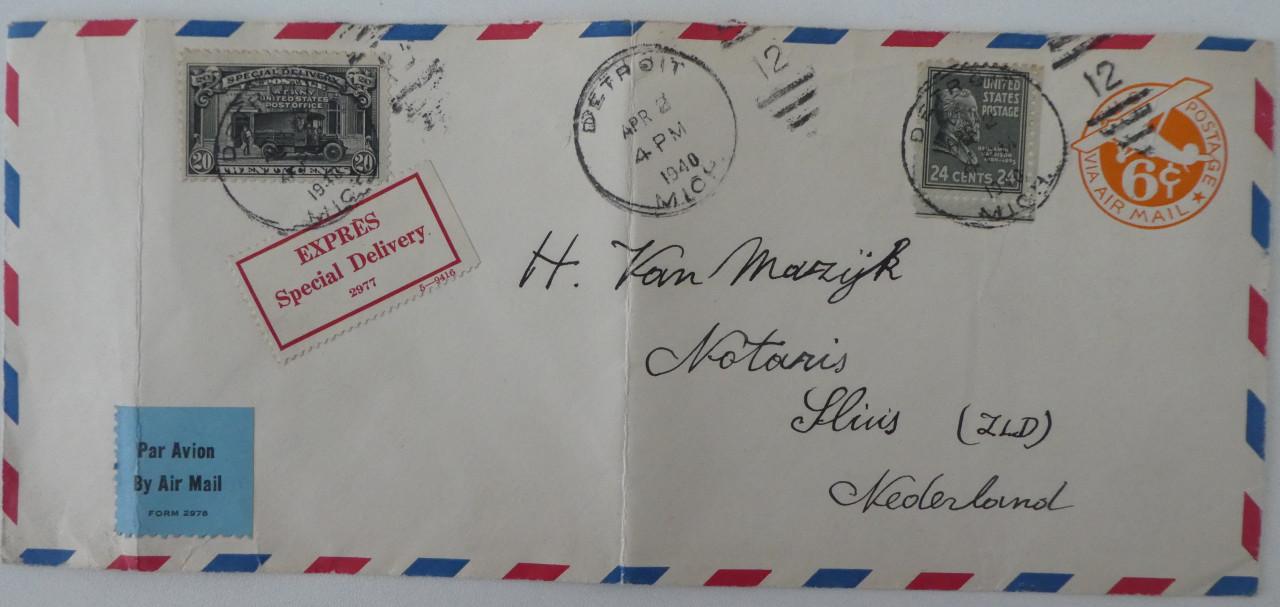 SPECIAL DELIVERY
POSTAGE
AT ANY
UNITED STATES
POST OFFICE
20 20
TWENTY CENTS
1940
MICH.
DETROIT
APR 2
4 PM
1940
MICH.
12
UNITED
STATES
POSTAGE
BENJAMIN
HARRISON
24 CENTS 24
MICH.
12
POSTAGE
6¢
VIA AIR MAIL
EXPRÈS
Special Delivery
2977
5—9416
H. Van Mazijk
Notaris
Sluis (ZLD)
Nederland
Par Avion
By Air Mail
FORM 2978